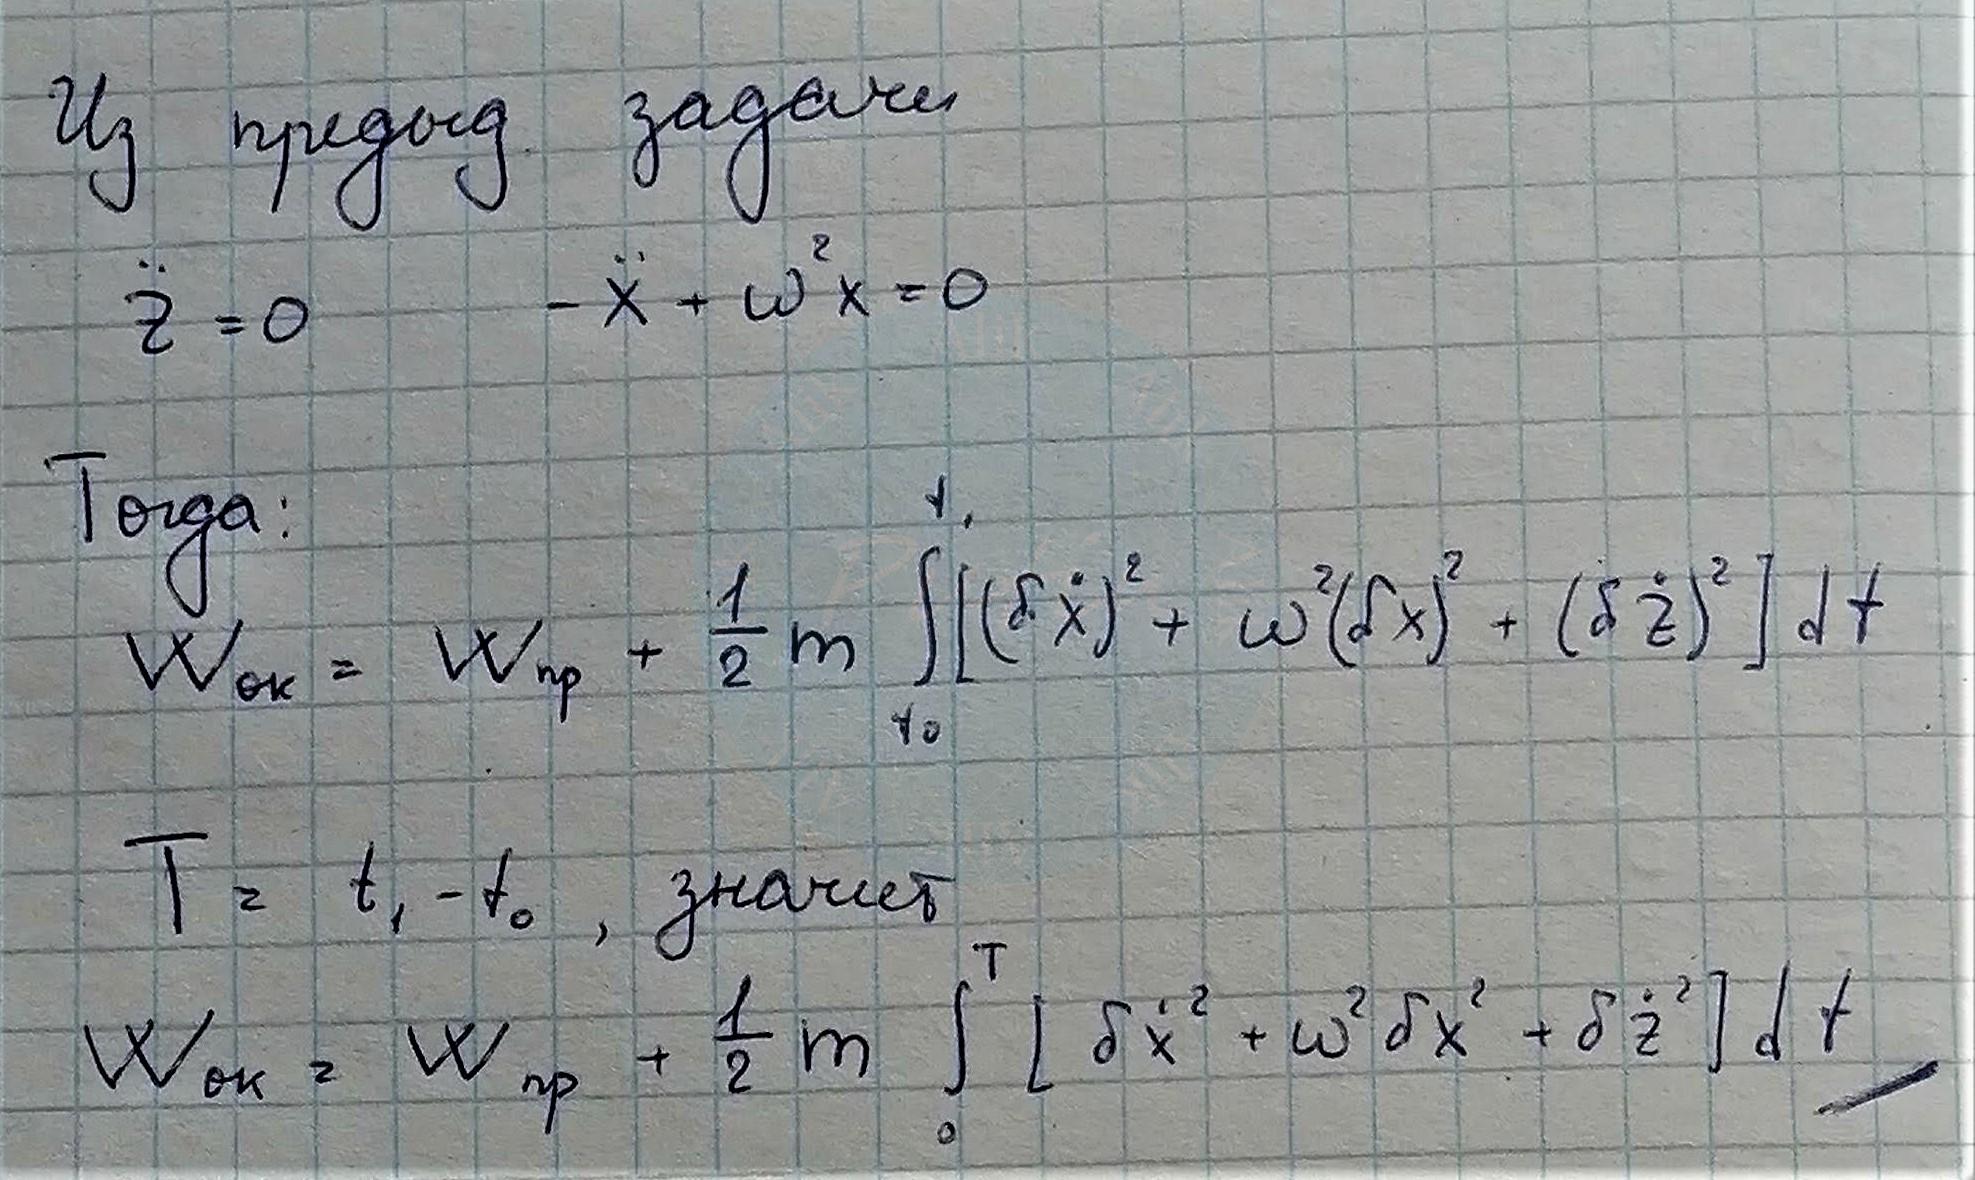 Из предыд. задачи
z̈ = 0 - ẍ + ω²x = 0
Тогда:
Wок = Wпр + 1/2 m ∫_{t₀}^{t₁} [(δẋ)² + ω²(δx)² + (δż)²] dt
T = t₁ - t₀, значит
Wок = Wпр + 1/2 m ∫_{0}^{T} [δẋ² + ω²δx² + δż²] dt